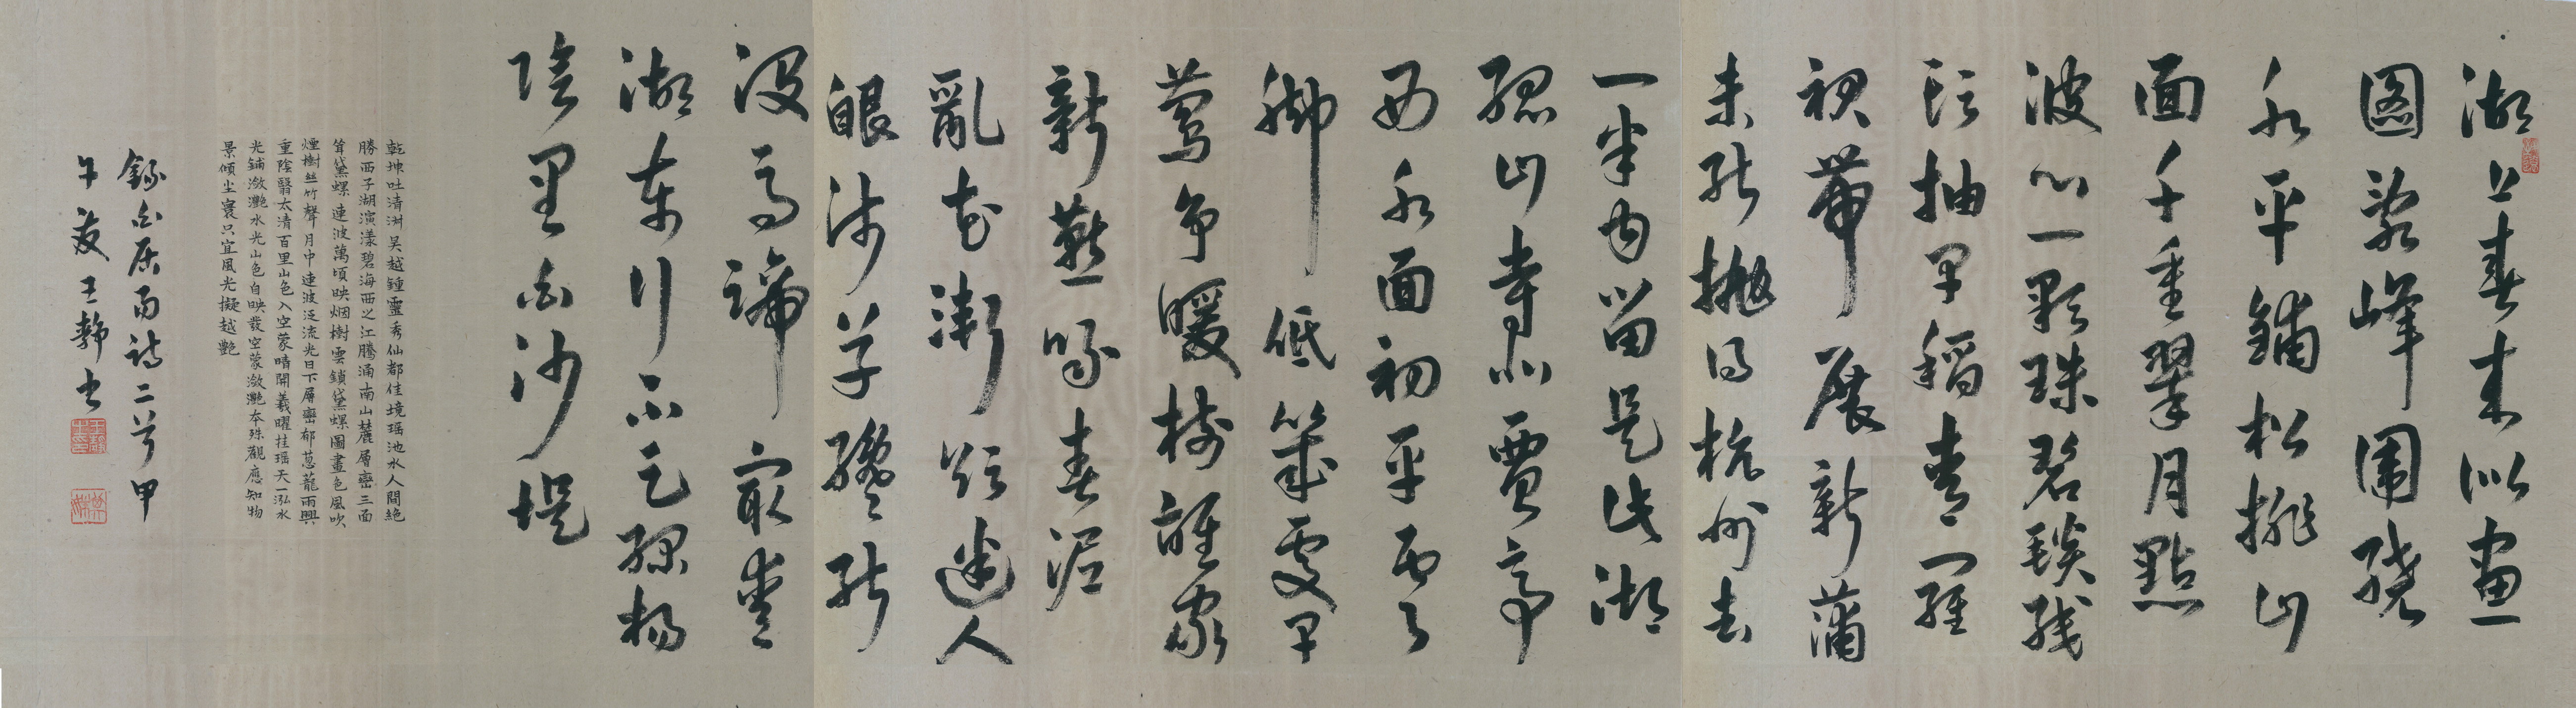 湖上春来似畫
圖亂峰围繞
水平鋪松排山
面千重翠月點
波心一顆珠碧毯线
頭抽早稻青羅
裙帶展新蒲
未能拋得杭州去
一半勾留是此湖
孤山寺北賈亭
西水面初平雲
腳低幾處早
鶯争暖樹誰家
新燕啄春泥
亂花漸欲迷人
眼淺草纔能
沒馬蹄最愛
湖東行不足綠楊
陰里白沙堤
乾坤吐清淑吴越鍾靈秀仙都佳境瑶池水人間絶
勝西子湖演漾碧海西之江騰涌南山麓層巒三面
聳黛螺連波萬頃映烟樹雲鎖黛螺圖畫色風吹
煙樹丝竹聲月中連波泛流光日下層巒郁葱蘢雨興
重陰翳太清百里山色入空蒙晴開羲曜挂瑶天一泓水
光鋪瀲灩水光山色自映發空蒙瀲灩本殊觀應知物
景傾尘寰只宜風光擬越艷
錄白居易詩二首甲
午夏王靜书